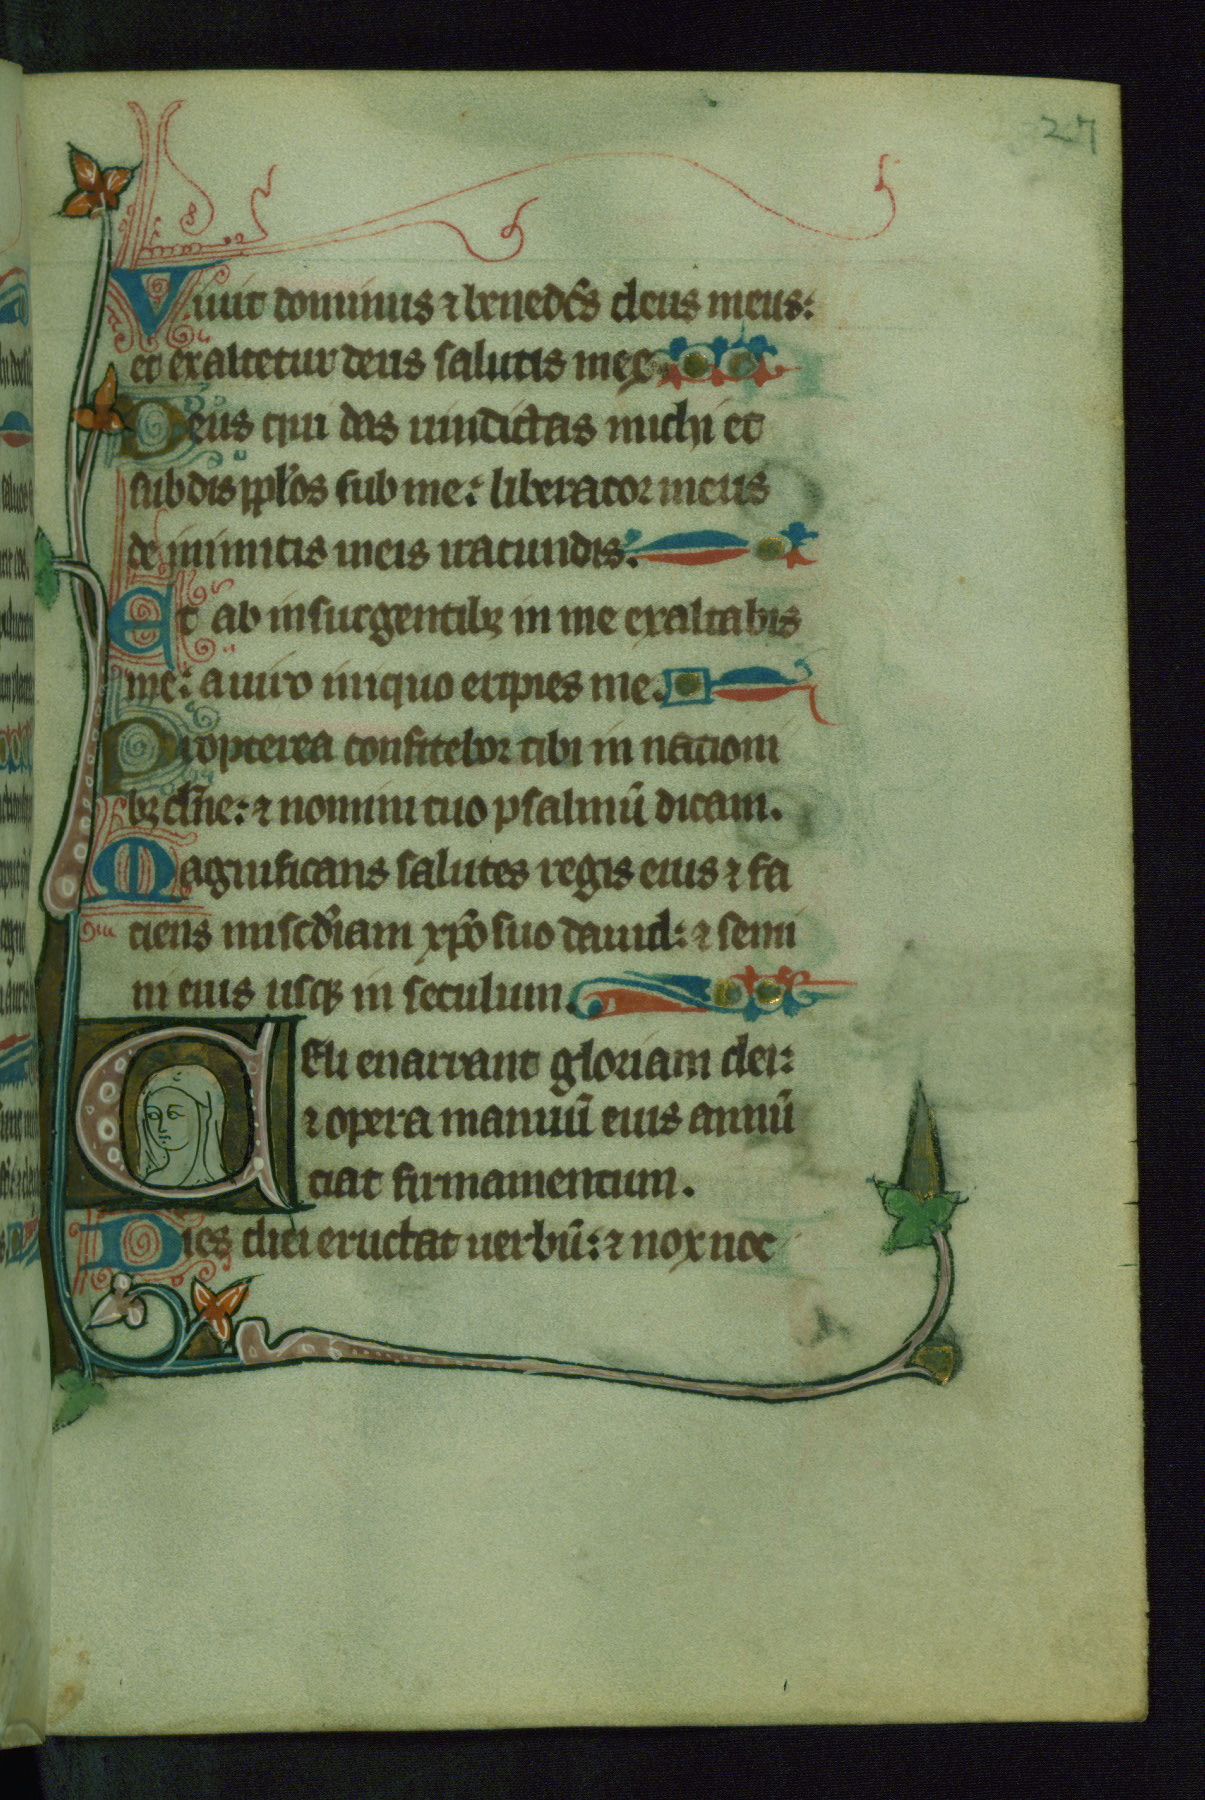 27
Viuit dominus ⁊ bened̃cs deus meus:
et exaltetur deus salutis mee
Deus qui das uindictas michi et
subdis pplo̅s sub me: liberator meus
de inimicis meis iracundis:
Et ab insurgentibꝫ in me exaltabis
me: a uiro iniquo eripies me.
Propterea confitebor tibi in nationi
bꝫ dn̅e: ⁊ nomini tuo psalmu̅ dicam.
Magnificans salutes regis eius ⁊ fa
ciens misc̅diam xp̅o suo dauid: ⁊ semi
ni eius usqꝫ in seculum.
Celi enarrant gloriam dei:
⁊ opera manuu̅ eius annu̅
ciat firmamentum.
Dies diei eructat uerbu̅: ⁊ nox noc